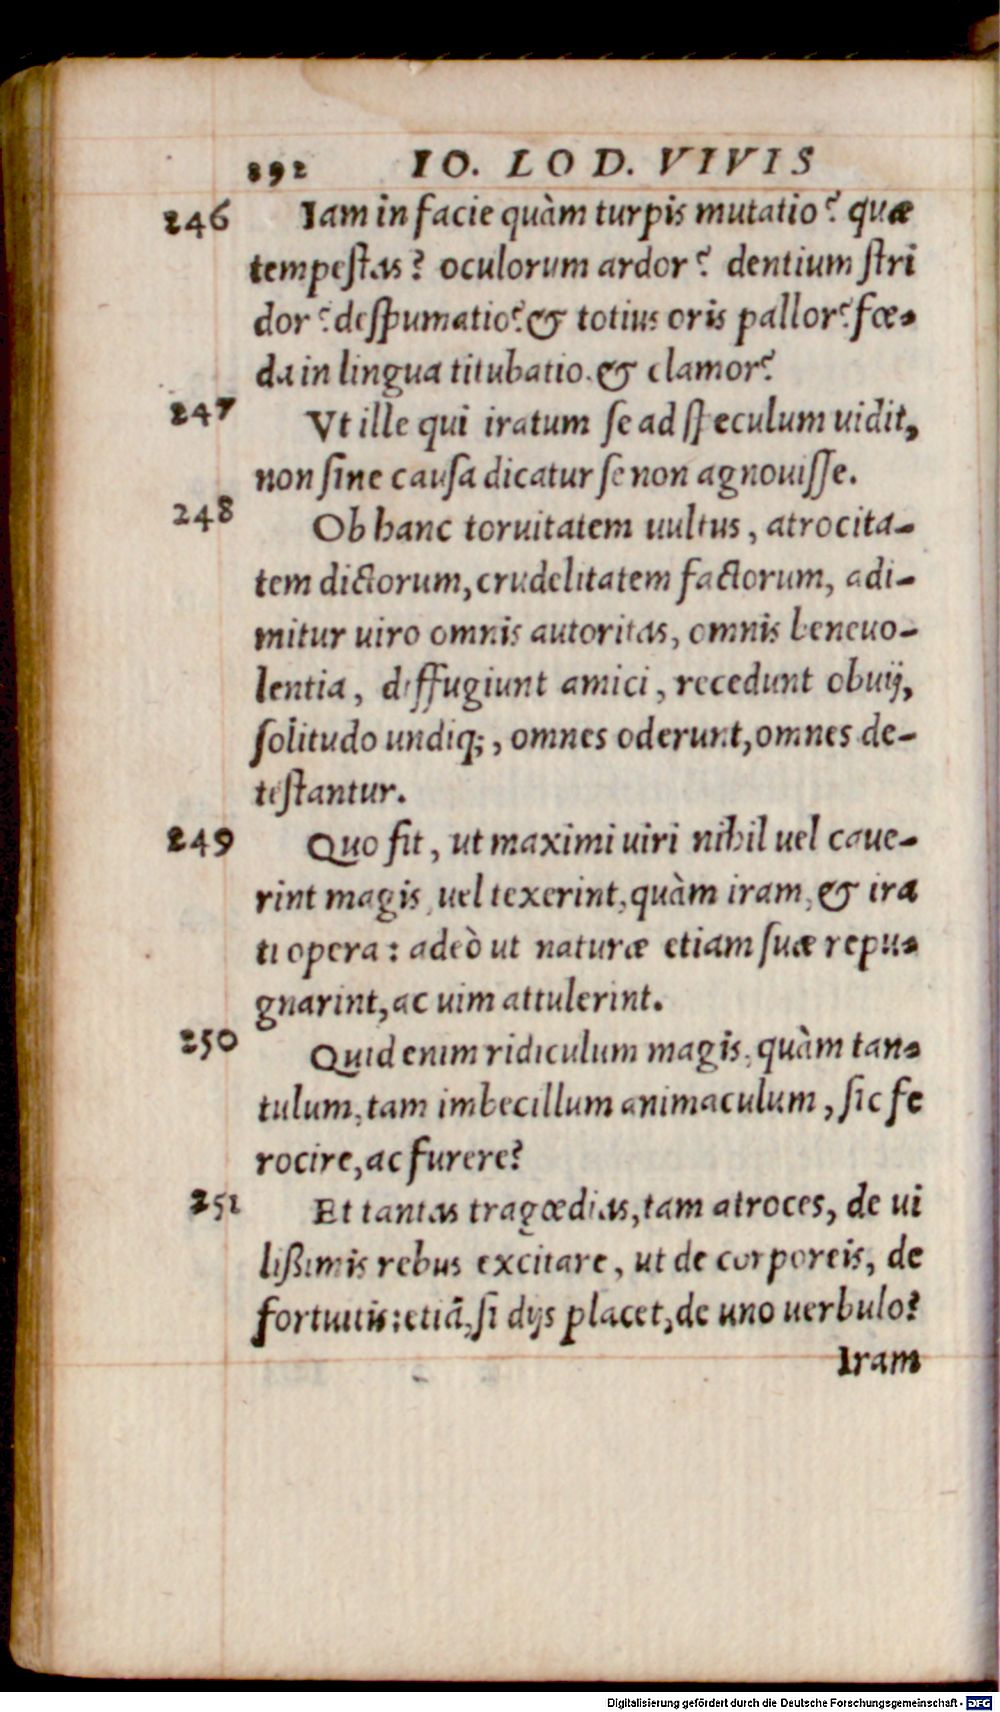 892 IO. LOD. VIVIS
246 Iam in facie quàm turpis mutatio? quæ
tempeſtas? oculorum ardor? dentium ſtri
dor? deſpumatio? & totius oris pallor? fœ-
da in lingua titubatio. & clamor?
247 Vt ille qui iratum ſe ad ſpeculum uidit,
non ſine cauſa dicatur ſe non agnouiſſe.
248 Ob hanc toruitatem uultus, atrocita-
tem dictorum, crudelitatem factorum, adi-
mitur uiro omnis autoritas, omnis beneuo-
lentia, diffugiunt amici, recedunt obuij,
ſolitudo undiq;, omnes oderunt, omnes de-
teſtantur.
249 Quo fit, ut maximi uiri nihil uel caue-
rint magis, uel texerint, quàm iram, & ira
ti opera: adeò ut naturæ etiam ſuæ repu-
gnarint, ac uim attulerint.
250 Quid enim ridiculum magis, quàm tan-
tulum, tam imbecillum animaculum, ſic fe
rocire, ac furere?
251 Et tantas tragœdias, tam atroces, de ui
lißimis rebus excitare, ut de corporeis, de
fortuitis: etiã, ſi dijs placet, de uno uerbulo?
Iram
Digitalisierung gefördert durch die Deutsche Forschungsgemeinschaft - DFG